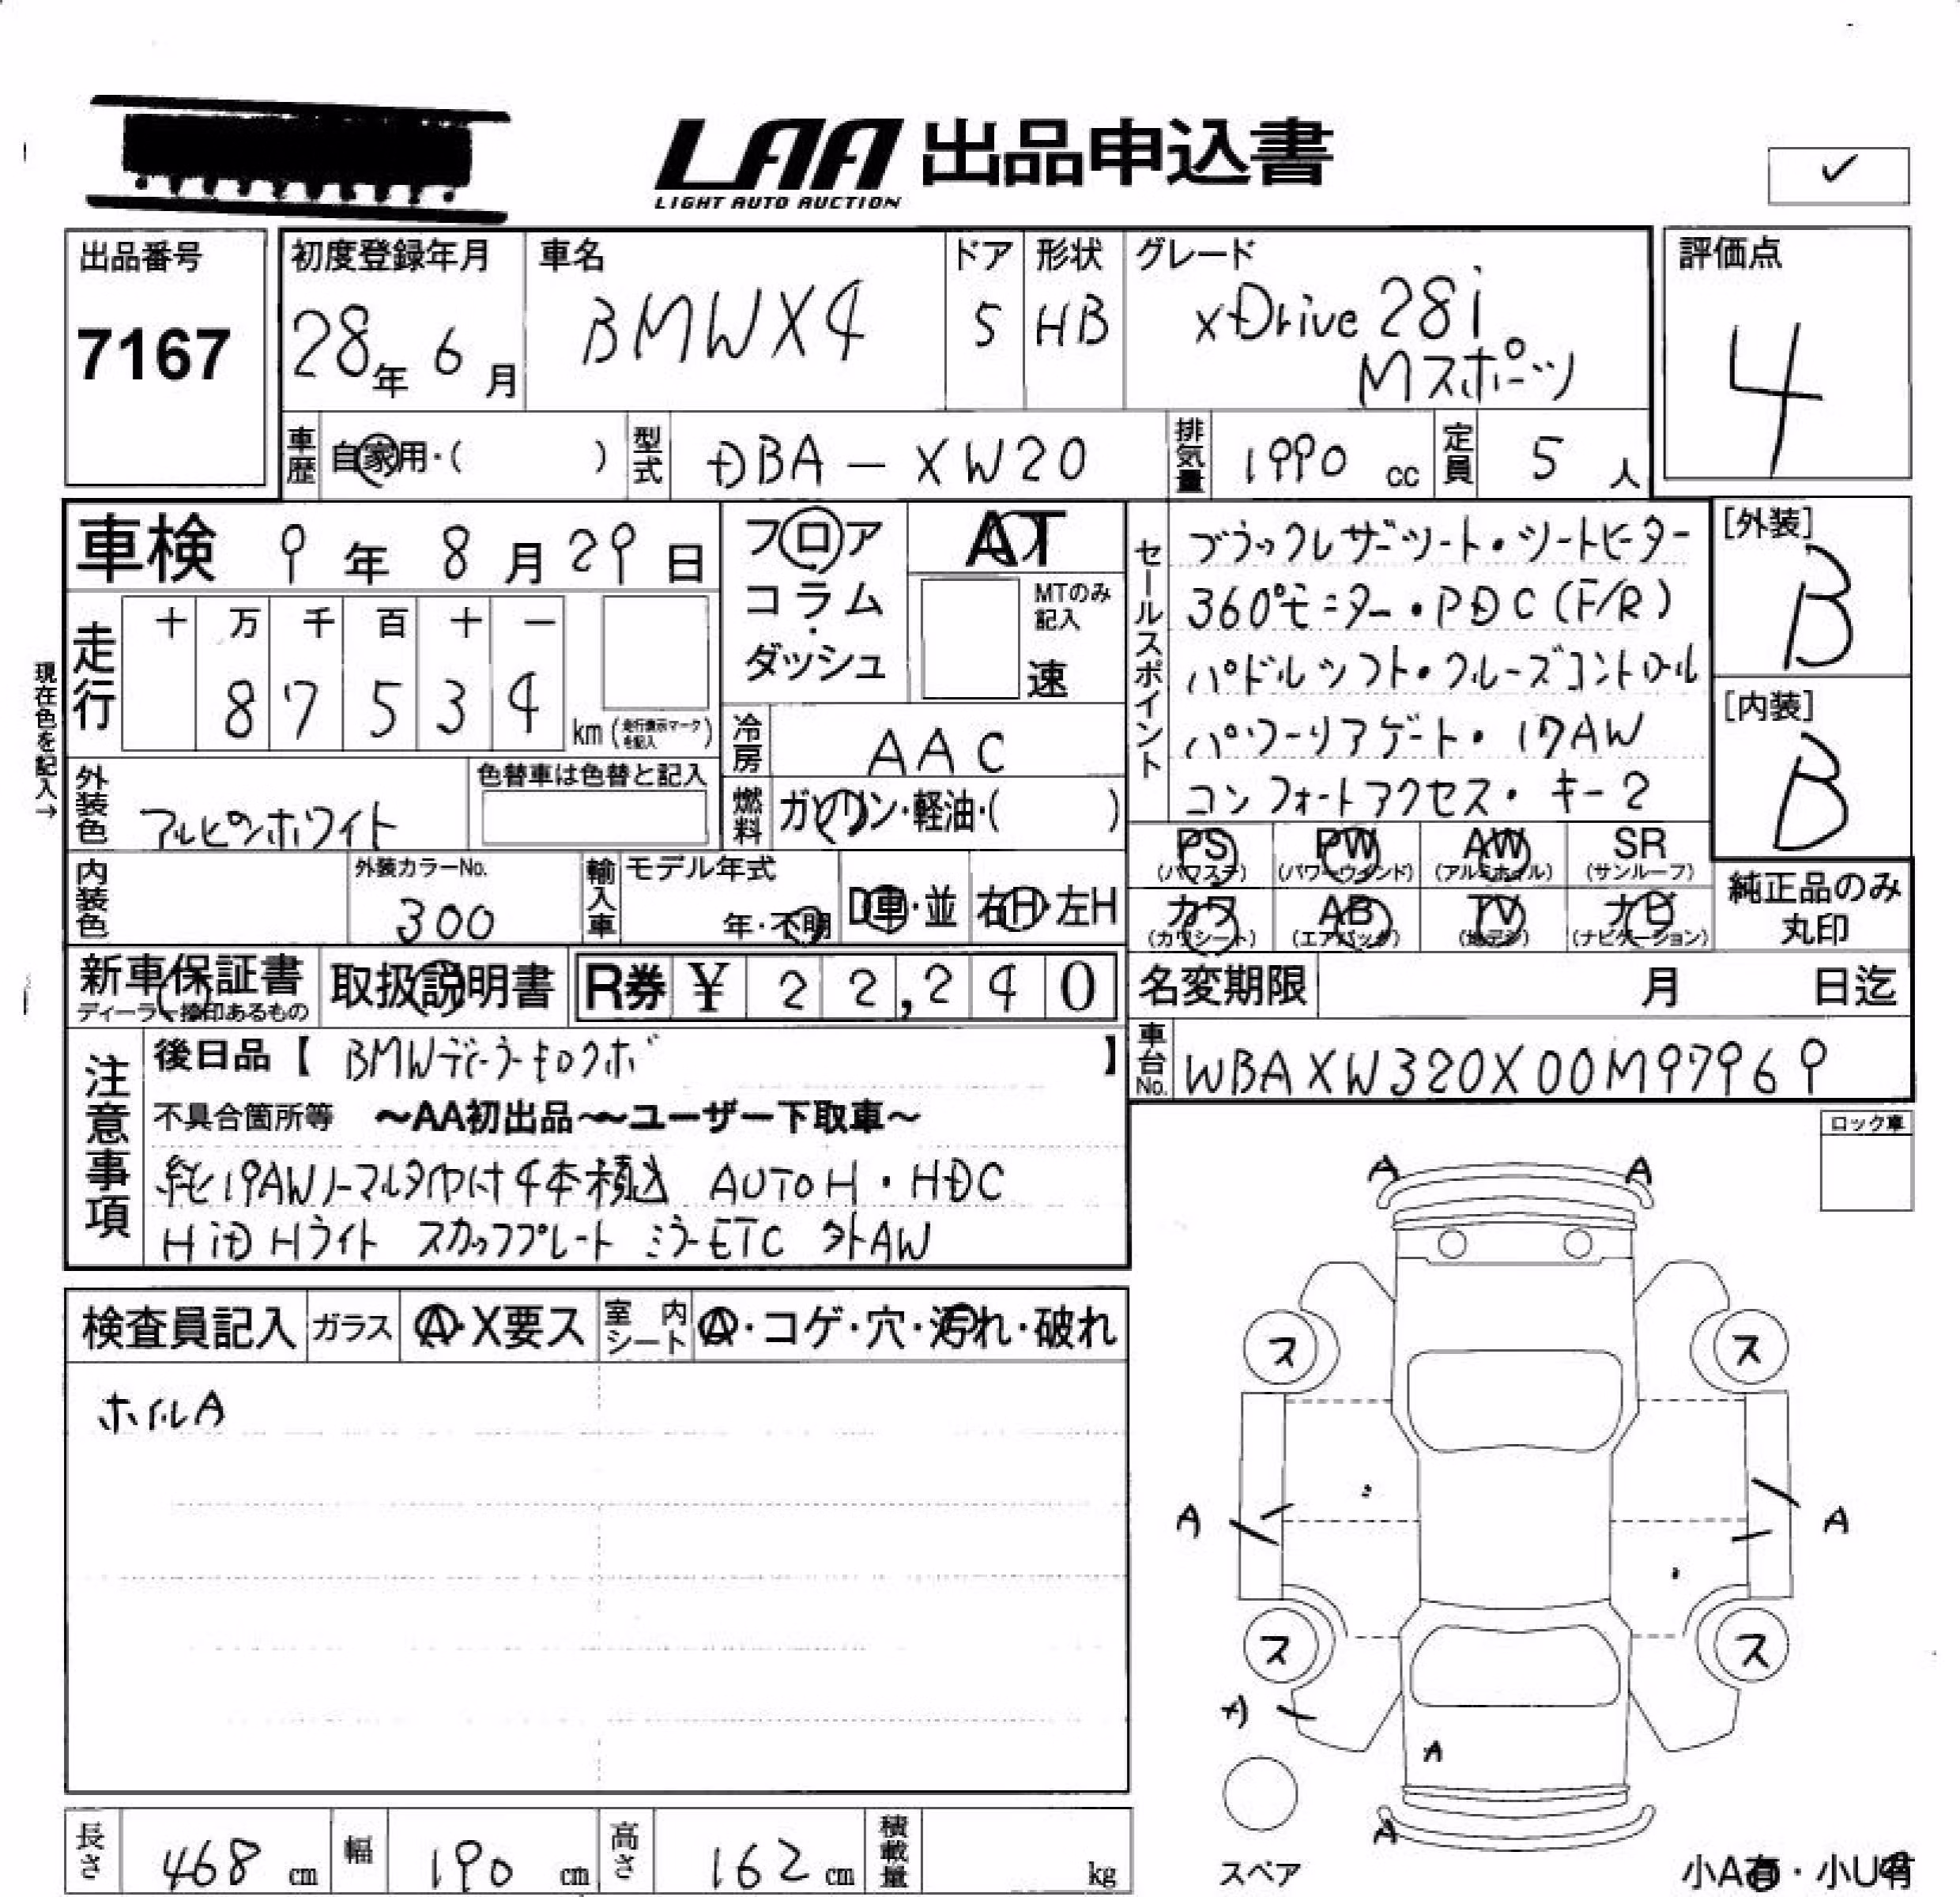 LAA 出品申込書
LIGHT AUTO AUCTION
✓
出品番号
7167
初度登録年月
28年 6月
車名
BMWX4
ドア
5
形状
HB
グレード
xDrive 28i
Mスポーツ
評価点
4
車歴 自家用・( )
型式 DBA-XW20
排気量 1990 cc
定員 5 人
車検 9年 8月 29日
フロア
コラム
・
ダッシュ
AT
MTのみ記入
速
セールスポイント
ブラックレザーシート・シートヒーター
360°モニター・PDC(F/R)
パドルシフト・クルーズコントロール
パワーリアゲート・17AW
コンフォートアクセス・キー2
[外装]
B
[内装]
B
現在色を記入→
走行
十 万 千 百 十 一
8 7 5 3 4
km (走行表示マークを記入)
冷房 AAC
燃料 ガソリン・軽油・( )
外装色 アルピンホワイト
色替車は色替と記入
内装色
外装カラーNo.
300
輸入車
モデル年式
年・不明
D車・並
右H・左H
PS (パワステ)
PW (パワーウィンド)
AW (アルミホイル)
SR (サンルーフ)
カワ (カワシート)
AB (エアバック)
TV (地デジ)
ナビ (ナビゲーション)
純正品のみ
丸印
新車保証書
ディーラー捺印あるもの
取扱説明書
R券 ¥ 22,240
名変期限 月 日迄
車台No. WBAXW320X00M97969
注意事項
後日品【 BMWディーラーキロクボ 】
不具合箇所等 ~AA初出品~~ユーザー下取車~
純19AWノーマルタイヤ付4本積込 AUTOH・HDC
HiD Hライト スカッフプレート ミラーETC 外AW
ロック車
検査員記入
ガラス A・X要ス
室内シート A・コゲ・穴・汚れ・破れ
ホイルA
A A
ス ス
A A
ス ス
A
A
スペア
小A有・小U有
長さ 468 cm
幅 190 cm
高さ 162 cm
積載量 kg